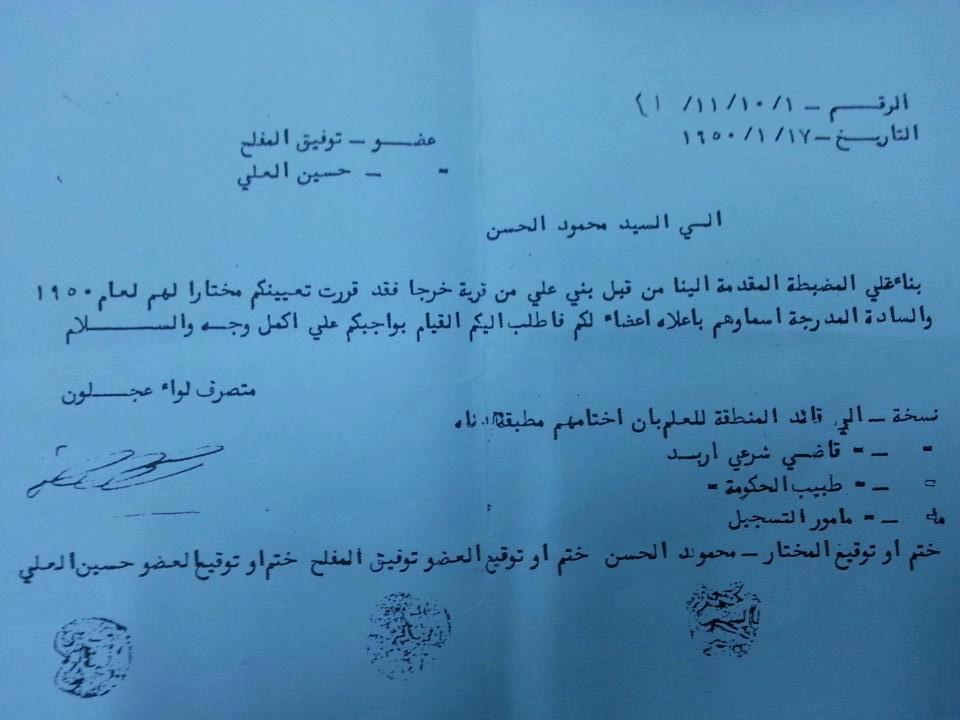 الرقـــم – ١١/١٠/١/
التاريــخ – ١٩٥٠/١/١٧
عضــو – توفيق المفلح
" – حسين العلي
الــي السيد محمود الحسن
بناءعلي المضبطة المقدمة الينا من قبل بني علي من قرية خرجا فقد قررت تعيينكم مختارا لهم لعام ١٩٥٠
والسادة المدرجة اسماوهم باعلاه اعضاء لكم فاطلب اليكم القيام بواجبكم علي اكمل وجــه والســـــلام
متصرف لواء عجـــلون
نسخة – الي قائد المنطقة للعلم بان اختامهم مطبقة ادناه
" – " قاضي شرعي اربــد
" – " طبيب الحكومة "
" – " مامور التسجيل
ختم او توقيع المختار – محمود الحسن ختم او توقيع العضو توفيق المفلح ختم او توقيع العضو حسين العلي